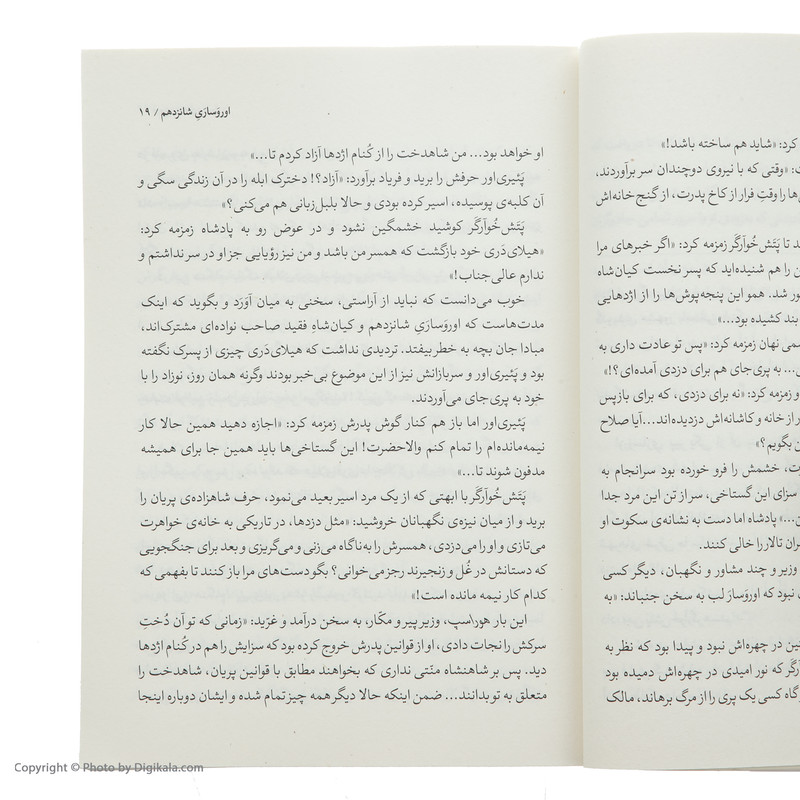 کرد: «شاید هم ساخته باشد!»
ت: «وقتی که با نیروی دوچندان سر برآوردند،
ی‌ها را وقتِ فرار از کاخ پدرت، از گنج خانه‌اش
د تا پَتَش‌خُوآرگَر زمزمه کرد: «اگر خبرهای مرا
ن را هم شنیده‌اید که پسر نخست کیان‌شاه
ور شد. همو این پنجه‌پوش‌ها را از اژدهایی
بند کشیده بود...»
سمی نهان زمزمه کرد: «پس تو عادت داری به
ی... به پری‌جای هم برای دزدی آمده‌ای؟!»
و زمزمه کرد: «نه برای دزدی، که برای بازپس
ر از خانه و کاشانه‌اش دزدیده‌اند... آیا صلاح
ن بگویم؟»
رت، خشمش را فرو خورده بود سرانجام به
سزای این گستاخی، سر از تن این مرد جدا
ن...» پادشاه اما دست به نشانه‌ی سکوت او
ران تالار را خالی کنند.
وزیر و چند مشاور و نگهبان، دیگر کسی
نبود که اوروَسار لب به سخن جنباند: «به
ین در چهره‌اش نبود و پیدا بود که نظر به
رگَر که نور امیدی در چهره‌اش دمیده بود
گاه کسی یک پری را از مرگ برهاند، مالک
اوروَسارَیِ شانزدهم / ۱۹
او خواهد بود... من شاهدخت را از کُنام اژدها آزاد کردم تا...»
پَئیری‌اور حرفش را برید و فریاد برآورد: «آزاد؟! دخترک ابله را در آن زندگی سگی و
آن کلبه‌ی پوسیده، اسیر کرده بودی و حالا بلبل‌زبانی هم می‌کنی؟»
پَتَش‌خُوآرگَر کوشید خشمگین نشود و در عوض رو به پادشاه زمزمه کرد:
«هیلای‌دَری خود بازگشت که همسر من باشد و من نیز رؤیایی جز او در سر نداشتم و
ندارم عالی‌جناب!»
خوب می‌دانست که نباید از آراستی، سخنی به میان آوَرَد و بگوید که اینک
مدت‌هاست که اوروَسارَیِ شانزدهم و کیان‌شاهِ فقید صاحب نواده‌ای مشترک‌اند،
مبادا جان بچه به خطر بیفتد. تردیدی نداشت که هیلای‌دَری چیزی از پسرک نگفته
بود و پَئیری‌اور و سربازانش نیز از این موضوع بی‌خبر بودند وگرنه همان روز، نوزاد را با
خود به پری‌جای می‌آوردند.
پَئیری‌اور اما باز هم کنار گوش پدرش زمزمه کرد: «اجازه دهید همین حالا کار
نیمه‌مانده‌ام را تمام کنم والاحضرت! این گستاخی‌ها باید همین جا برای همیشه
مدفون شوند تا...»
پَتَش‌خُوآرگَر با ابهتی که از یک مرد اسیر بعید می‌نمود، حرف شاهزاده‌ی پریان را
برید و از میان نیزه‌ی نگهبانان خروشید: «مثل دزدها، در تاریکی به خانه‌ی خواهرت
می‌تازی و او را می‌دزدی، همسرش را به ناگاه می‌زنی و می‌گریزی و بعد برای جنگجویی
که دستانش در غُل و زنجیرند رجز می‌خوانی؟ بگو دست‌های مرا باز کنند تا بفهمی که
کدام کار نیمه مانده است!»
این بار هوراسپ، وزیر پیر و مکّار، به سخن درآمد و غرّید: «زمانی که تو آن دُختِ
سرکش را نجات دادی، او از قوانین پدرش خروج کرده بود که سزایش را هم در کُنام اژدها
دید. پس بر شاهنشاه منّتی نداری که بخواهند مطابق با قوانین پریان، شاهدخت را
متعلق به تو بدانند... ضمن اینکه حالا دیگر همه چیز تمام شده و ایشان دوباره اینجا
Copyright © Photo by Digikala.com